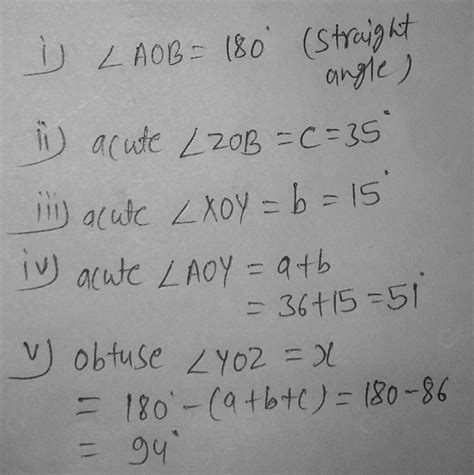 i) ∠AOB = 180° (straight
angle)
ii) acute ∠ZOB = C = 35°
iii) acute ∠XOY = b = 15°
iv) acute ∠AOY = a+b
= 36+15 = 51°
v) obtuse ∠YOZ = x
= 180° - (a+b+c) = 180-86
= 94°